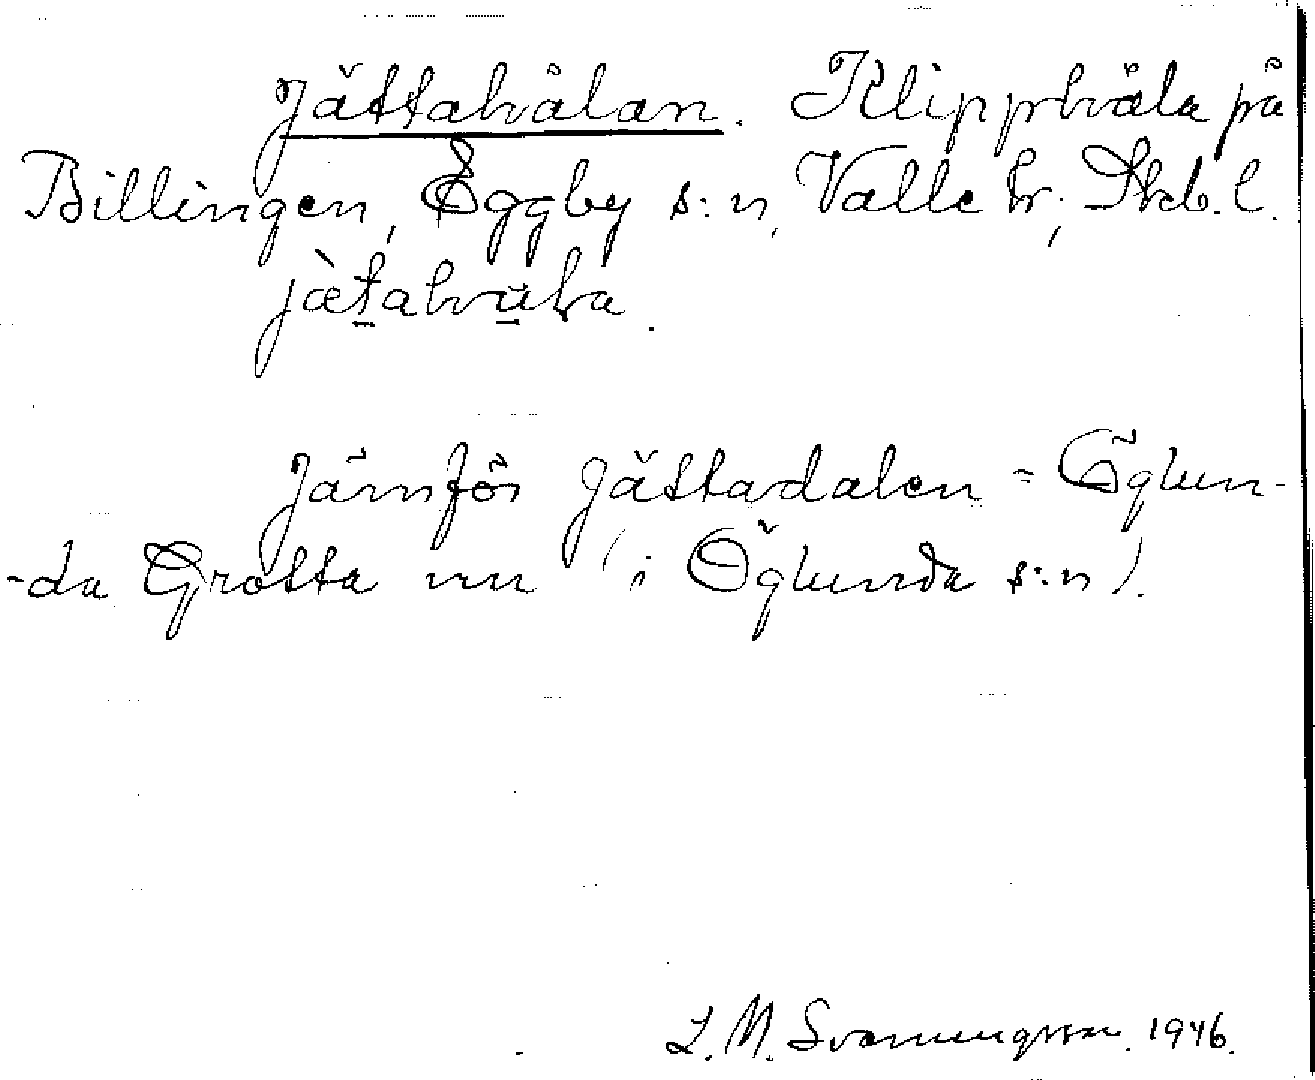 Jättahålan. Klipphåla på
Billingen, Eggby s:n, Valle hr, Skb. l.
jæ̀ṯahu̱ḷa.
Jämför Jättadalen = Öglun-
-da Grotta nu (i Öglunda s:n).
L. M. Svanungsson. 1946.